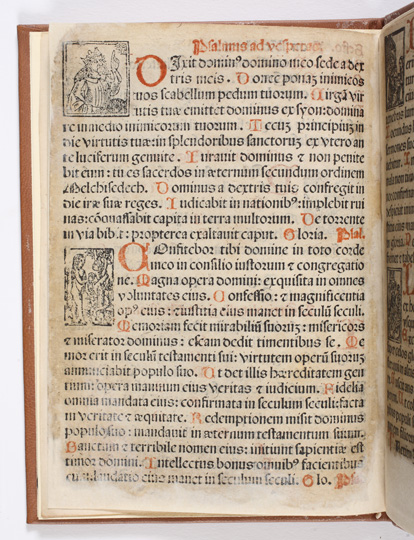 Psalmus ad vesperas.
DIxit dominꝰ domino meo sede a dex
tris meis. Donec ponaꝫ inimicos
tuos scabellum pedum tuorum. Uirgã vir
tutis tuæ emittet dominus ex syon: domina
re in medio inimicorum tuorum. Tecuꝫ principiuꝫ in
die virtutis tuæ: in splendoribus sanctorum ex vtero an
te luciferum genui te. Iurauit dominus ⁊ non penite
bit eum: tu es sacerdos in æternum secundum ordinem
Melchisedech. Dominus a dextris tuis confregit in
die iræ suæ reges. Iudicabit in nationibꝰ: implebit rui
nas: cõquassabit capita in terra multorum. De torrente
in via bibet: propterea exaltauit caput. Gloria. Psal.
COnfitebor tibi domine in toto corde
meo in consilio iustorum ⁊ congregatio
ne. Magna opera domini: exquisita in omnes
voluntates eius. Confessio: ⁊ magnificentia
opꝰ eius: ⁊ iustitia eius manet in seculũ seculi.
Memoriam fecit mirabiliũ suoruꝫ: misericors
⁊ miserator dominus: escam dedit timentibus se. Me
mor erit in seculũ testamenti sui: virtutem operũ suoruꝫ
annunciabit populo suo. Ut det illis hæreditatem gen
tium: opera manuum eius veritas ⁊ iudicium. Fidelia
omnia mandata eius: confirmata in seculum seculi: facta
in veritate ⁊ æquitate. Redemptionem misit dominus
populo suo: mandauit in æternum testamentum suum.
Sanctum ⁊ terribile nomen eius: initium sapientiæ est
timor domini. Intellectus bonus omnibꝰ facientibus
eum: laudatio eius manet in seculum seculi. Glo. Psal.